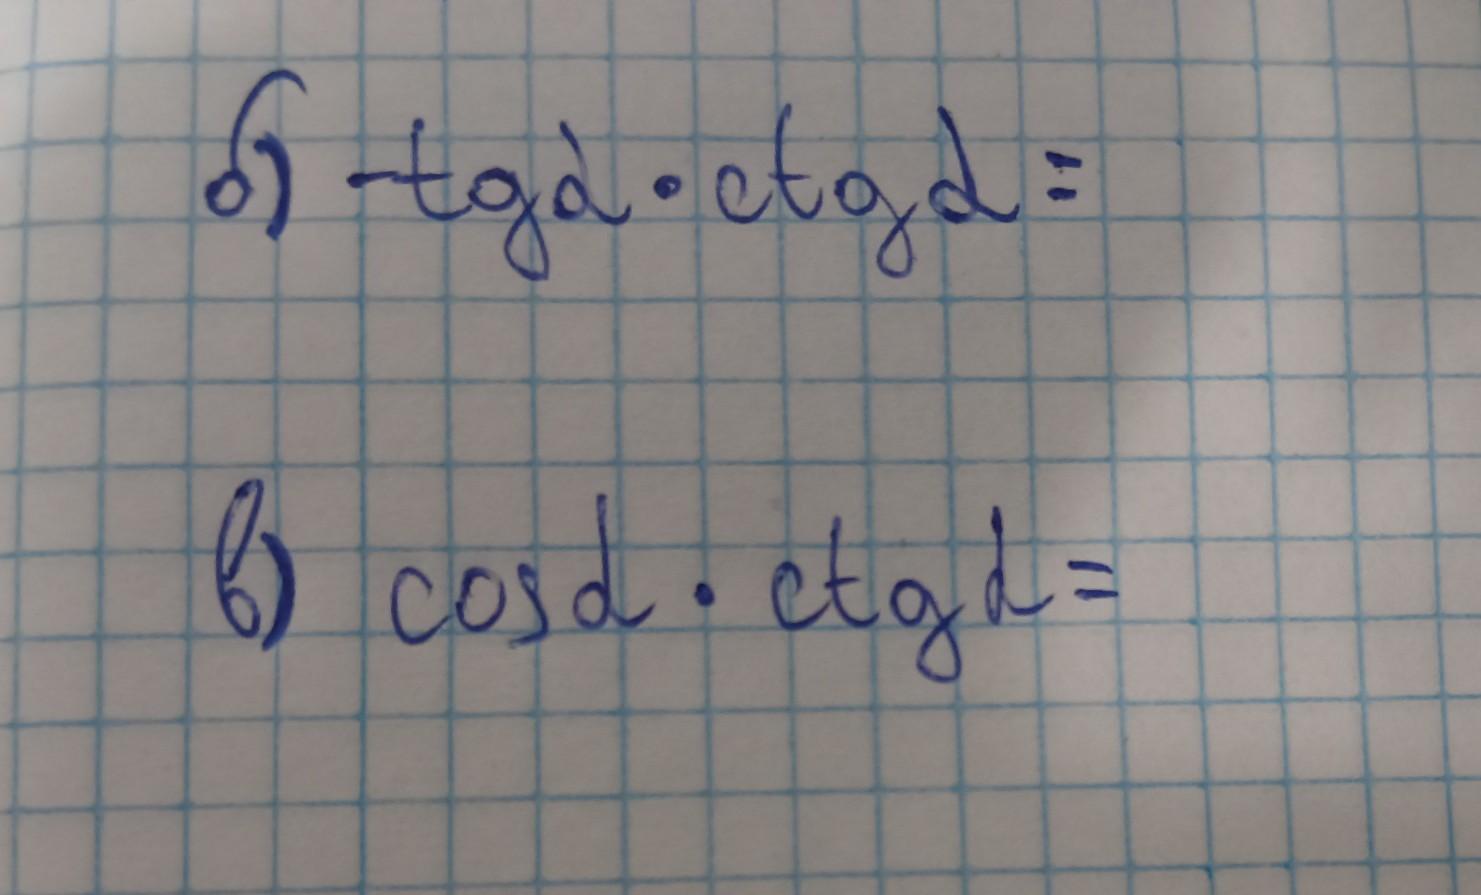 б) -tgα · ctgα =
в) cosα · ctgα =